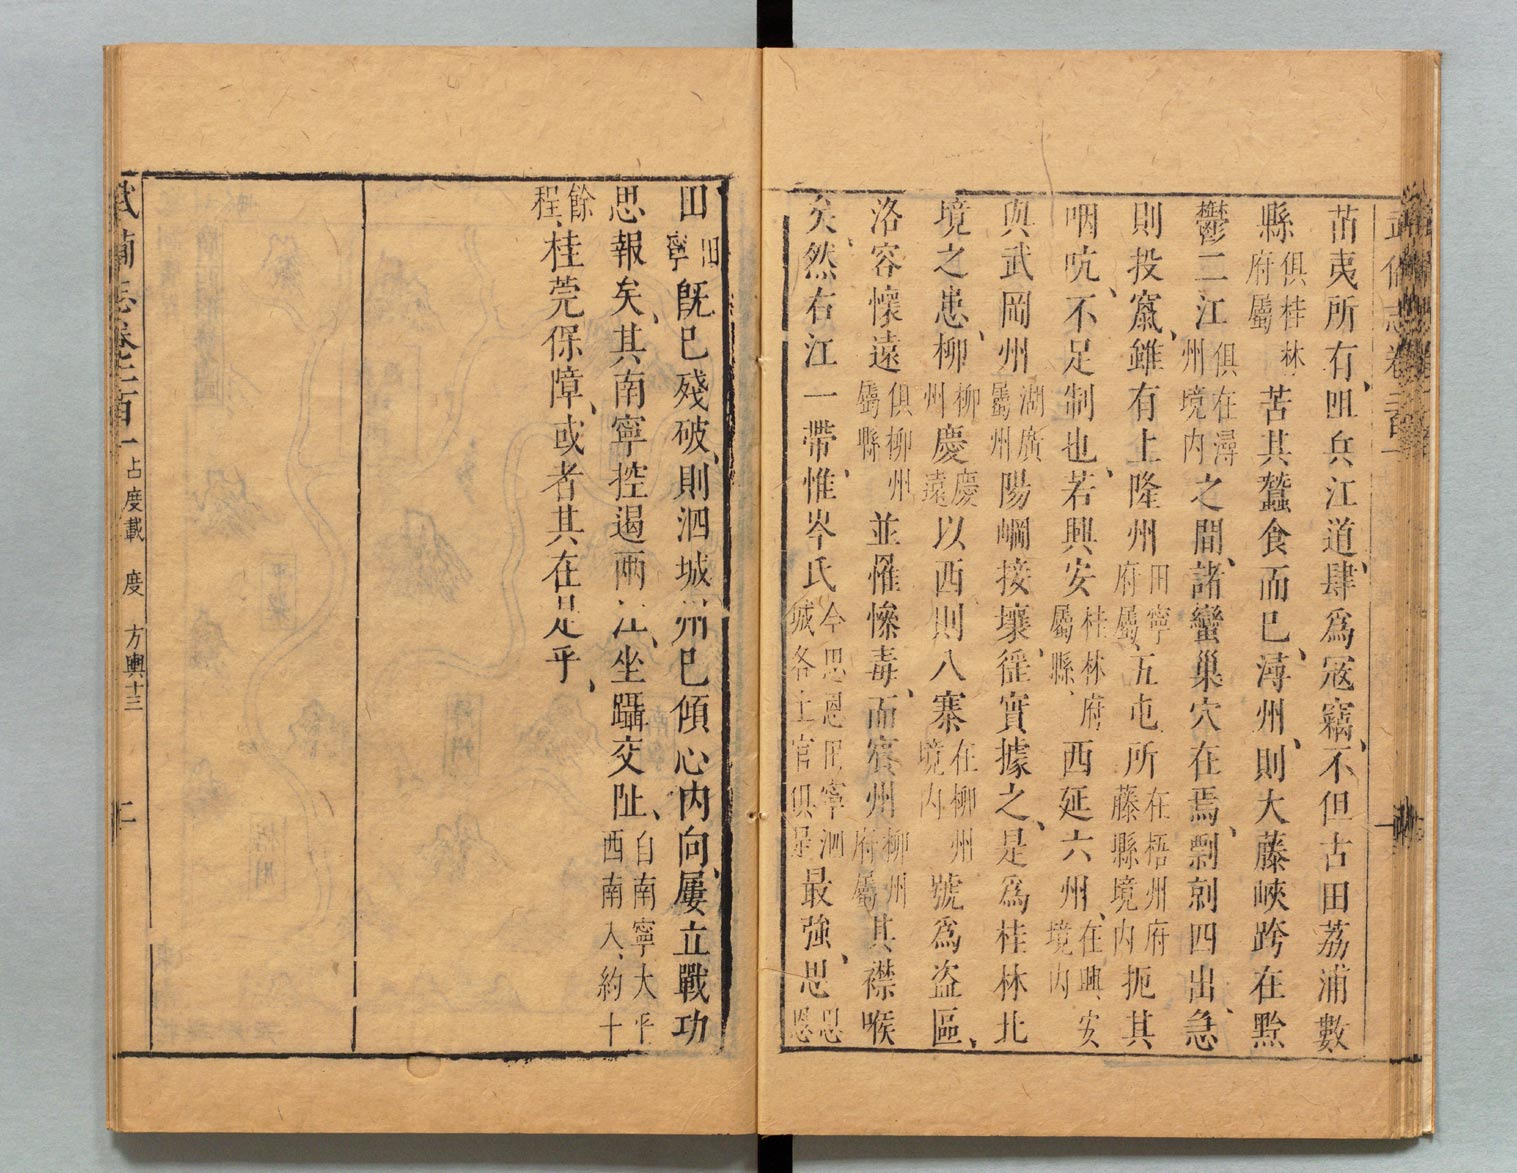 苗夷所有、阻兵江道、肆爲寇竊、不但古田荔浦數
縣俱桂林府屬苦其蠶食而已、潯州、則大藤峽跨在黔
鬱二江俱在潯州境內之間、諸蠻巢穴在焉、剽剠四出、急
則投竄、雖有上隆州田寧府屬、五屯所在梧州府藤縣境內扼其
咽吭、不足制也、若興安桂林府屬縣、西延六州、在興安境內
與武岡州湖廣屬州陽峒接壤、猺實據之、是爲桂林北
境之患、柳柳州慶慶遠以西則八寨在柳州境內號爲盗區、
洛容懷遠俱柳州屬縣並罹慘毒、而賓州柳州府屬其襟喉
矣、然右江一帶、惟岑氏今思恩田寧泗城各土官俱是最強、思思恩
田田寧既已殘破、則泗城州已傾心內向、屢立戰功
思報矣、其南寧控遏兩江、坐躡交阯、自南寧太平西南入、約十
餘程、桂莞保障、或者其在是乎、
武備志卷三百一 占度載 度 方輿十三 二